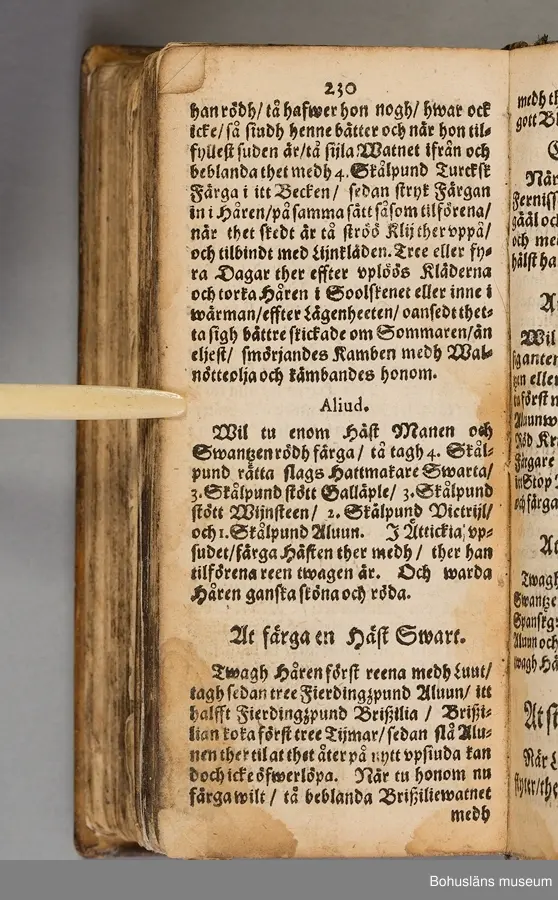 230
han rödh/ tå hafwer hon nogh/ hwar ock
icke/ så siudh henne bätter och när hon til-
fyllest suden är/ tå sijla Watnet ifrån och
beblanda thet medh 4. Skålpund Turcksk
Färga i itt Becken/ sedan stryk Färgan
in i Håren/ på samma sätt såsom tilförena/
när thet skedt är tå ströö Klij ther vppå/
och tilbindt med Lijnkläden. Tree eller fy-
ra Dagar ther effter vplöös Kläderna
och torka Håren i Soolskenet eller inne i
wärman/ effter Lägenheeten/ oansedt thet-
ta sigh bättre skickade om Sommaren/ än
eljest/ smörjandes Kamben medh Wal-
nötteolja och kämbandes honom.
Aliud.
Wil tu enom Häst Manen och
Swantzen rödh färga/ tå tagh 4. Skål-
pund rätta slags Hattmakare Swarta/
3. Skålpund stött Galläple/ 3. Skålpund
stött Wijnsteen/ 2. Skålpund Victrijl/
och 1. Skålpund Aluun. I Ättickia vp-
sudet/ färga Hästen ther medh/ ther han
tilförena reen twagen är. Och warda
Håren ganska sköna och röda.
At färga en Häst Swart.
Twagh Håren först reena medh Luut/
tagh sedan tree Fierdingzpund Aluun/ itt
halfft Fierdingzpund Brißilia / Brißi-
lian koka först tree Tijmar/ sedan slå Alu-
nen ther til at thet åter på nytt vpsiuda kan
doch icke öfwerlöpa. När tu honom nu
färga wilt/ tå beblanda Brißiliewatnet
medh
Bohusläns museum